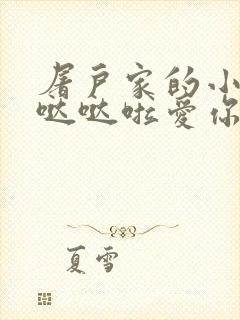 屠户家的小
哒哒啦爱你
夏雪